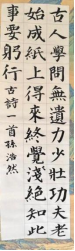 古人學問無遺力少壯功夫老
始成紙上得來終覺淺絕知此
事要躬行古詩一首孫浩然